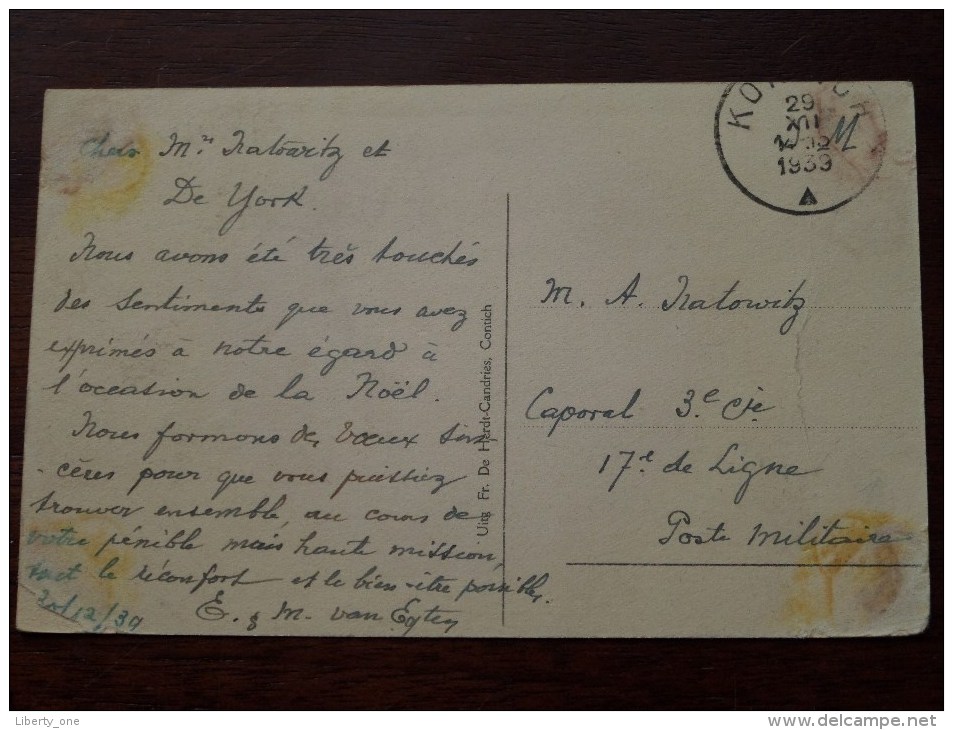 Chers Mrs Natowitz et
De York.
Nous avons été très touchés
des sentiments que vous avez
exprimés à notre égard à
l'occasion de la Noël.
Nous formons des voeux sin-
-cères pour que vous puissiez
trouver ensemble, au cours de
votre pénible mais haute mission,
tout le réconfort et le bien-être possibles.
E. & M. van Egten
12/39
Uitg Fr. De Herdt-Candries, Contich
29
XII
1939
M
M. A. Natowitz
Caporal 3e Cie
17e de Ligne
Poste Militaire
Liberty_one
delcampe.net